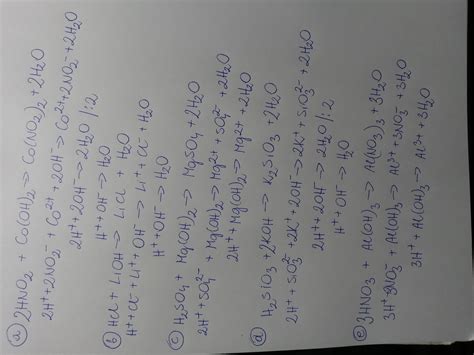 a) 2HNO2 + Co(OH)2 → Co(NO2)2 + 2H2O
2H⁺ + 2NO2⁻ + Co²⁺ + 2OH⁻ → Co²⁺ + 2NO2⁻ + 2H2O
2H⁺ + 2OH⁻ → 2H2O /:2
H⁺ + OH⁻ → H2O
b) HCl + LiOH → LiCl + H2O
H⁺ + Cl⁻ + Li⁺ + OH⁻ → Li⁺ + Cl⁻ + H2O
H⁺ + OH⁻ → H2O
c) H2SO4 + Mg(OH)2 → MgSO4 + 2H2O
2H⁺ + SO4²⁻ + Mg(OH)2 → Mg²⁺ + SO4²⁻ + 2H2O
2H⁺ + Mg(OH)2 → Mg²⁺ + 2H2O
d) H2SiO3 + 2KOH → K2SiO3 + 2H2O
2H⁺ + SiO3²⁻ + 2K⁺ + 2OH⁻ → 2K⁺ + SiO3²⁻ + 2H2O
2H⁺ + 2OH⁻ → 2H2O /:2
H⁺ + OH⁻ → H2O
e) 3HNO3 + Al(OH)3 → Al(NO3)3 + 3H2O
3H⁺ 3NO3⁻ + Al(OH)3 → Al³⁺ + 3NO3⁻ + 3H2O
3H⁺ + Al(OH)3 → Al³⁺ + 3H2O